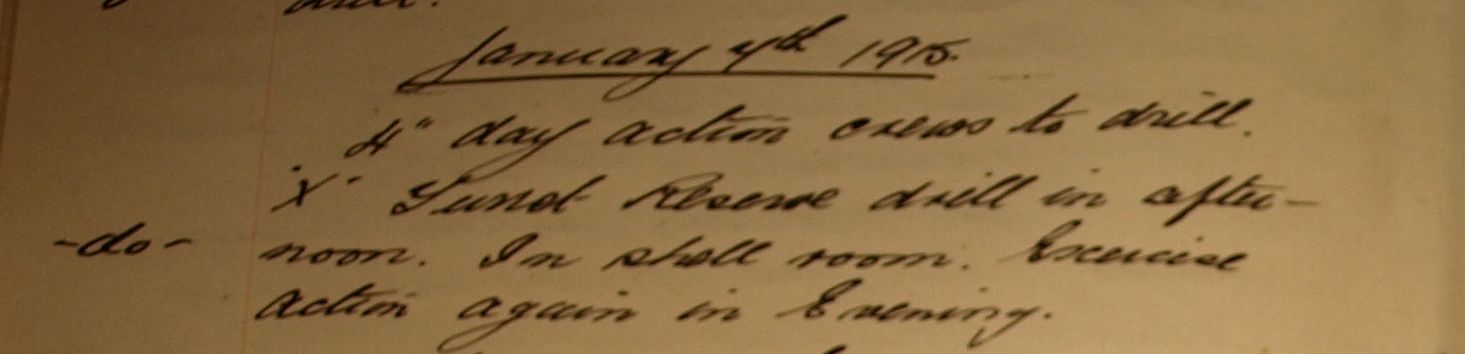 drill.
January 4th 1915.
4" day action crews to drill.
"X" Turret Reserve drill in after-
-do- noon. In shell room. Exercise
action again in Evening.